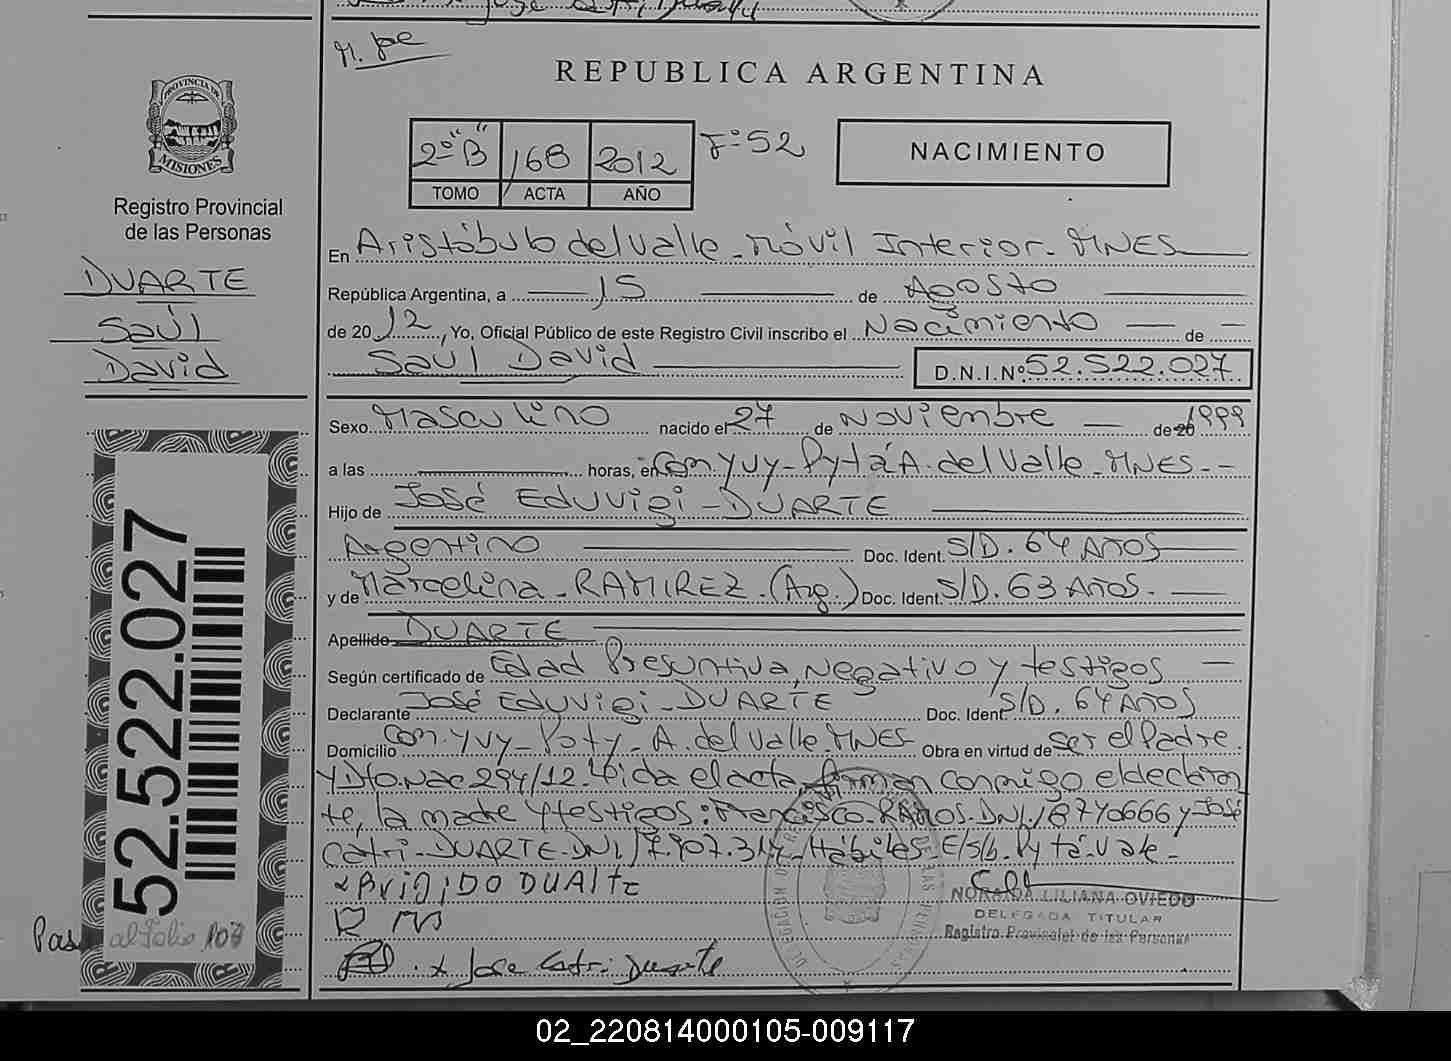 M. Joe
REPUBLICA ARGENTINA
PROVINCIA DE
MISIONES
2º "B" 168 2012 Fº 52
TOMO ACTA AÑO
NACIMIENTO
Registro Provincial
de las Personas
DUARTE
Saúl
David
En Aristóbulo del Valle - Móvil Interior - MNES
República Argentina, a 15 de Agosto
de 2012, Yo, Oficial Público de este Registro Civil inscribo el Nacimiento de
Saúl David D.N.I.Nº 52.522.027
Sexo Masculino nacido el 27 de Noviembre de 20 1999
a las horas, en Com. Yvy - Pytá A. del Valle - MNES. -
Hijo de José Eduvigi - DUARTE
Argentino Doc. Ident. S/D. 64 Años
y de Marcelina - RAMIREZ - (Arg.) Doc. Ident. S/D. 63 Años. -
Apellido DUARTE
Según certificado de Edad Presuntiva, Negativo y testigos
Declarante José Eduvigi - DUARTE Doc. Ident. S/D. 64 Años
Domicilio Com. Yvy - Poty - A. del Valle. MNES Obra en virtud de ser el Padre
y Dto. Nac 294/12. Leida el acta, firman conmigo el declaran
te, la madre y testigos: Francisco - RAMOS - DNI. 18740666 y José
Catri - DUARTE - DNI 7.907.314 - Hábiles - E/s/b. Pytá - Vale -
x BrigiDO DUARte
NORAIDA LILIANA OVIEDO
DELEGADA TITULAR
Registro Provincial de las Personas
x Jose Catri Duarte
52.522.027
Pasa al folio 107
02_220814000105-009117